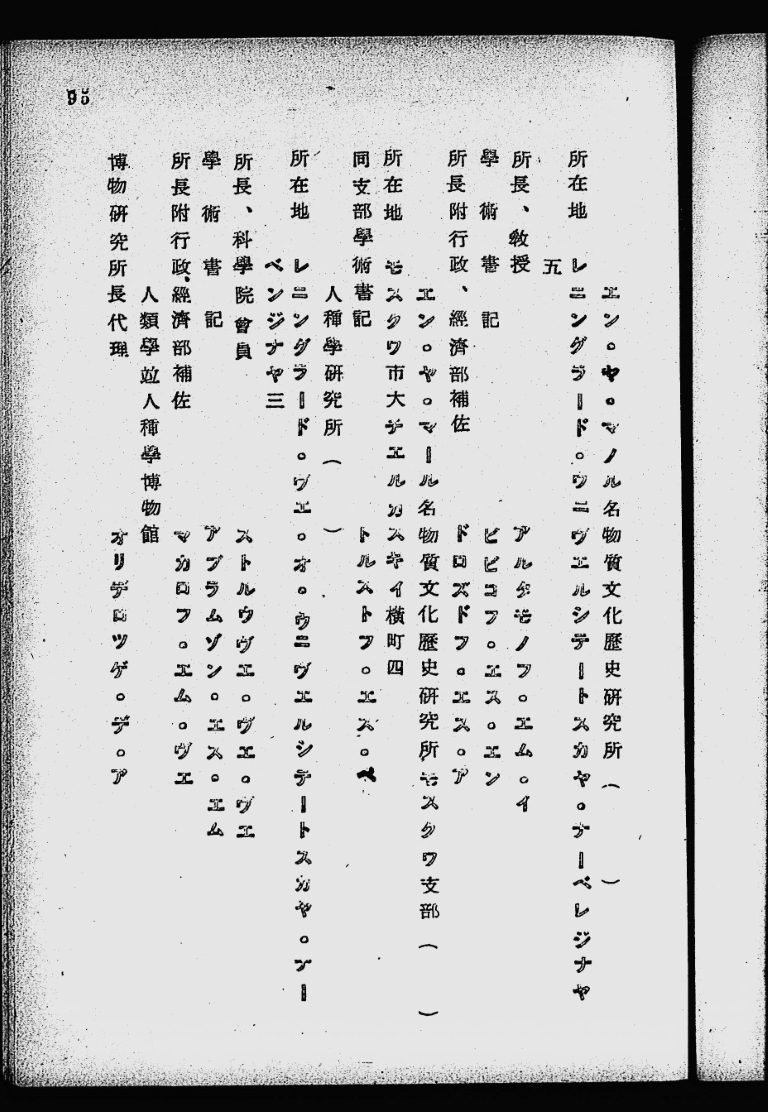 エン。ヤ。マノル名物質文化歷史硏究所（　）
所在地　レニングラード。ウニヴエルシテートスカヤ。ナーベレジナヤ
五
所長、敎授　アルタモノフ。エム。イ
學術書記　ビビコフ。エス。エン
所長附行政、經濟部補佐　ドロズドフ。エス。ア
エン。ヤ。マール名物質文化歷史硏究所モスクワ支部（　）
所在地　モスクワ市大チエルカスキイ橫町四
同支部學術書記　トルストフ。エス。ペ
人種學硏究所（　）
所在地　レニングラード。ヴエ。オ。ウニヴエルシテートスカヤ。ナー
ベンジナヤ三
所長、科學院會員　ストルウヴエ。ヴエ。ヴエ
學術書記　アブラムゾン。エス。エム
所長附行政、經濟部補佐　マカロフ。エム。ヴエ
人類學竝人種學博物館
博物硏究所長代理　オリデロツゲ。デ。ア
95